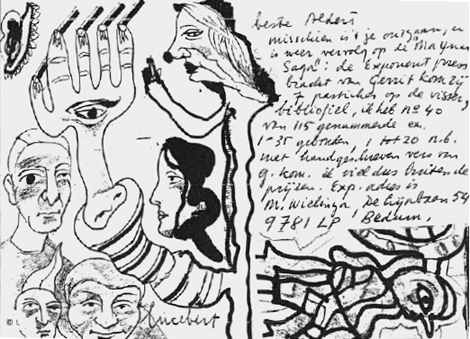 beste Aldert
misschien is 't je ontgaan, er
is weer vervolg op de "Maximaa
Saga": de Exponent pers
bracht van Gerrit Komrij
7 pastiches op de vissen,
bibliofiel, ik heb no 40
van 115 genummerde ex.
1-35 gebonden, 1 tot 20 m.b.
met handgeschreven vers van
g. kom. ik viel dus buiten de
prijzen. Exp. adres is
M. Wielinga, De Lijnbaan 54
9781 LP, Bedum.
Lucebert